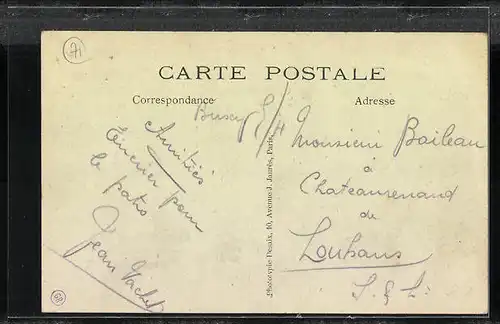 71
CARTE POSTALE
Correspondance
Adresse
Buscy S/
Amitiés
le patro
Jean Vachet
Photocypie Desaix, 10, Avenue J. Jaurès, Paris.
Monsieur Baileau
à
Chateaurenaud
de
Louhans
S. & L.
GR